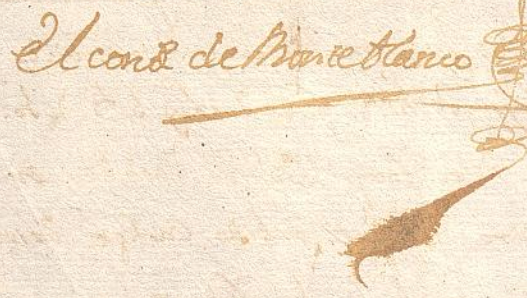 el conde de Monteblanco